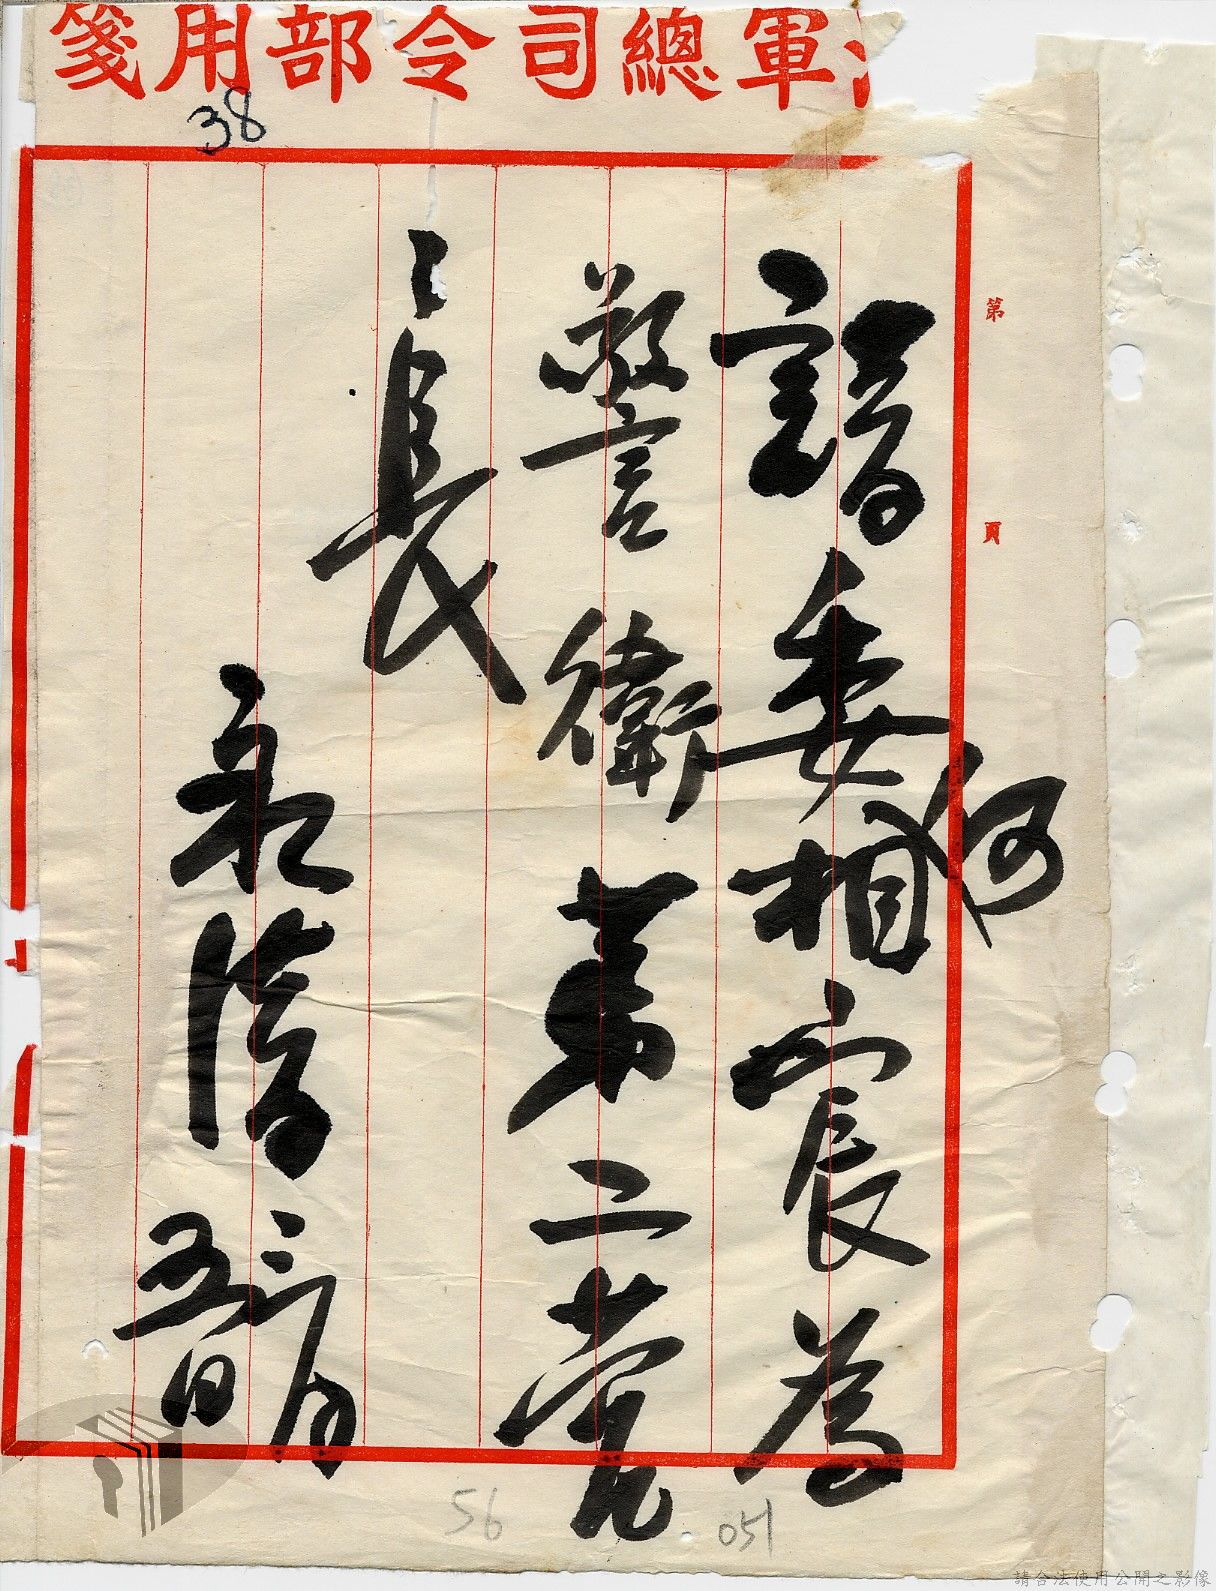 軍總司令部用箋
38
第 頁
請委何相宸為
警衛第二營
營長
永清
三月
五日
56
051
請合法使用公開之影像